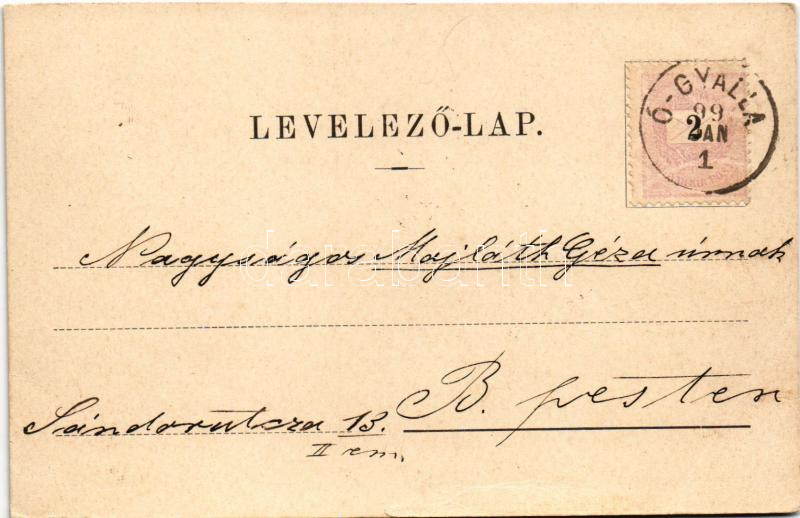 Ó-GYALLA
99
JAN
1
2
LEVELEZŐ-LAP.
Nagyságos Majláth Géza úrnak
B. pesten
Sándorutcza 13.
II em.
darabanth